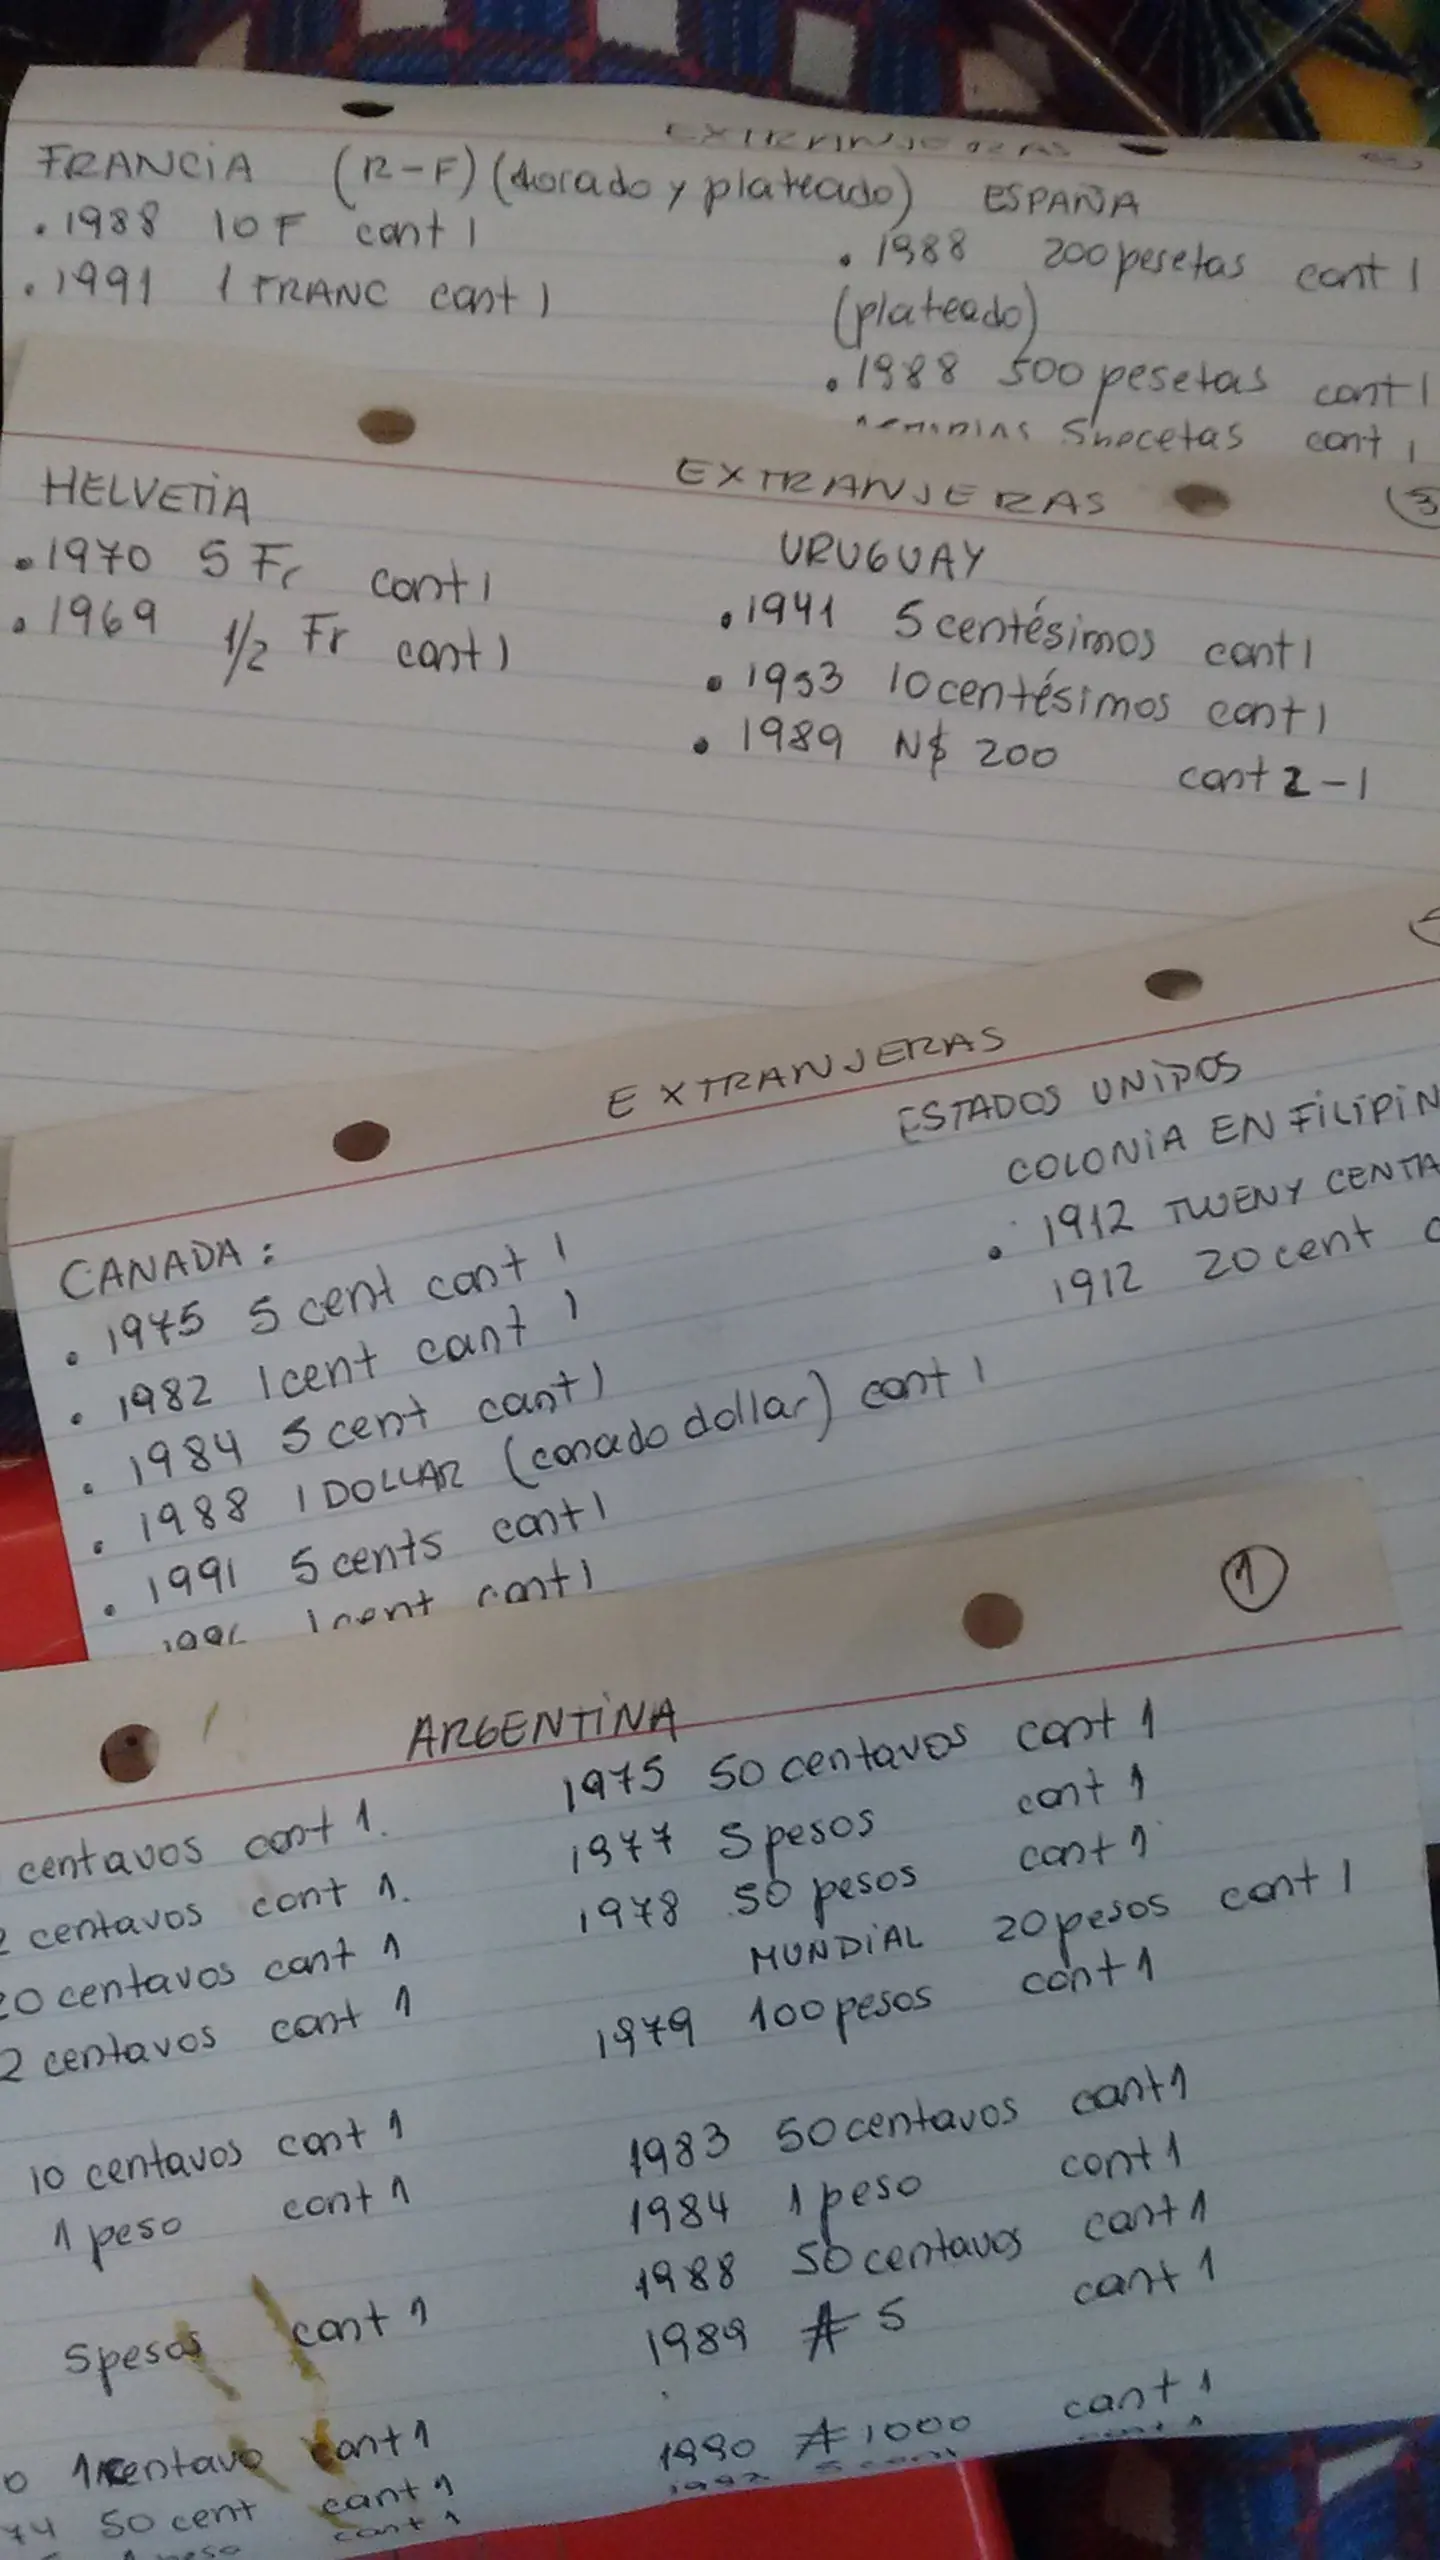 EXTRANJERAS
FRANCIA (R-F) (dorado y plateado)
. 1988 10 F cant 1
. 1991 1 FRANC cant 1
ESPAÑA
. 1988 200 pesetas cant 1
(plateado)
. 1988 500 pesetas cant 1
cant 1
EXTRANJERAS 3
HELVETIA
. 1970 5 Fr cant 1
. 1969 1/2 Fr cant 1
URUGUAY
. 1941 5 centésimos cant 1
. 1953 10 centésimos cant 1
. 1989 N$ 200 cant 2-1
EXTRANJERAS
CANADA:
. 1975 5 cent cant 1
. 1982 1 cent cant 1
. 1984 5 cent cant 1
. 1988 1 DOLLAR (canado dollar) cant 1
. 1991 5 cents cant 1
1 cent cant 1
ESTADOS UNIDOS
COLONIA EN FILIPIN
. 1912 TWENY CENTA
1912 20 cent
1
ARGENTINA
centavos cant 1.
2 centavos cant 1.
20 centavos cant 1
2 centavos cant 1
10 centavos cant 1
1 peso cant 1
5 pesos cant 1
0 1 centavo cant 1
74 50 cent cant 1
1 peso cant 1
1975 50 centavos cant 1
1977 5 pesos cant 1
1978 50 pesos cant 1
MUNDIAL 20 pesos cant 1
1979 100 pesos cant 1
1983 50 centavos cant 1
1984 1 peso cant 1
1988 50 centavos cant 1
1989 ₳ 5 cant 1
1990 ₳ 1000 cant 1